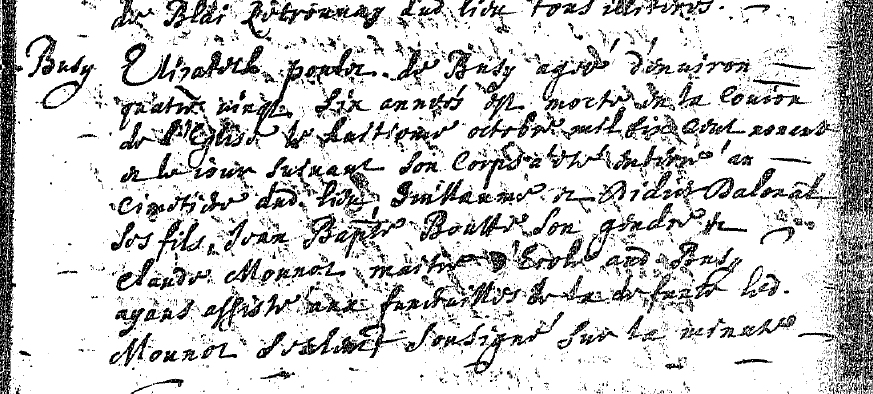 de Blai Petronnay dud. lieu tous illitires.
Busy Elizabeth de Busy agee d'environ
quatre vingt six annees est morte en la Comion
de l'Eglise le huitieme octobre mil six Cent nonente
et le iour suivant son Corps a ete enterre au
Cimetiere dud. lieu, Guillaume et Didier Dalonal
ses fils, Jean Bapte Boutte son gendre et
Claude Monnot maitre d'Ecole aud. Busy
ayans assiste aux funerailles de la defunte led.
Monnot seulemt soubsigné sur la minute